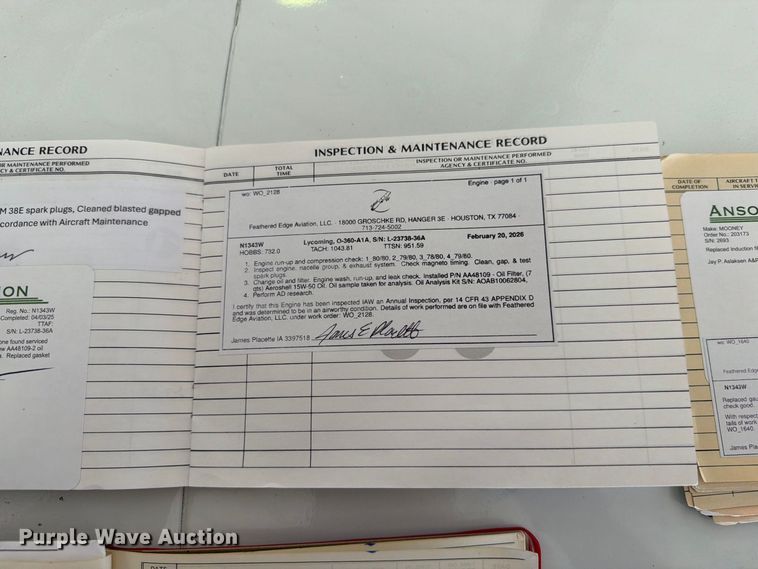 NANCE RECORD
OR MAINTENANCE PERFORMED
CY & CERTIFICATE NO.
M 38E spark plugs, Cleaned blasted gapped
cordance with Aircraft Maintenance
ION
Reg. No.: N1343W
Completed: 04/03/25
TTAF:
S/N: L-23738-36A
one found serviced
ew AA48109-2 oil
s. Replaced gasket
INSPECTION & MAINTENANCE RECORD
DATE
TOTAL TIME
INSPECTION OR MAINTENANCE PERFORMED
AGENCY & CERTIFICATE NO.
wo: WO_2128
Engine - page 1 of 1
Feathered Edge Aviation, LLC. - 18000 GROSCHKE RD, HANGER 3E - HOUSTON, TX 77084 -
713-724-5002
N1343W
Lycoming, O-360-A1A, S/N: L-23738-36A
February 20, 2026
HOBBS: 732.0
TACH: 1043.81
TTSN: 951.59
1. Engine run-up and compression check: 1_80/80, 2_79/80, 3_78/80, 4_79/80.
2. Inspect engine, nacelle group, & exhaust system. Check magneto timing. Clean, gap, & test
spark plugs.
3. Change oil and filter. Engine wash, run-up, and leak check. Installed P/N AA48109 - Oil Filter, (7
qts) Aeroshell 15W-50 Oil. Oil sample taken for analysis. Oil Analysis Kit S/N: AOAB10062804,
4. Perform AD research.
I certify that this Engine has been inspected IAW an Annual Inspection, per 14 CFR 43 APPENDIX D
and was determined to be in an airworthy condition. Details of work performed are on file with Feathered
Edge Aviation, LLC. under work order: WO_2128.
James Placette IA 3397518
James E Placette
DATE OF COMPLETION
AIRCRAFT T
IN SERVIC
ANSO
Make: MOONEY
Order No.: 203173
S/N: 2693
Replaced Induction fil
Jay P. Aslaksen A&P
wo: WO_1640
Feathered Edge
N1343W
Replaced gau
check good.
With respect
tails of work
WO_1640.
James Pla
DATE
Purple Wave Auction